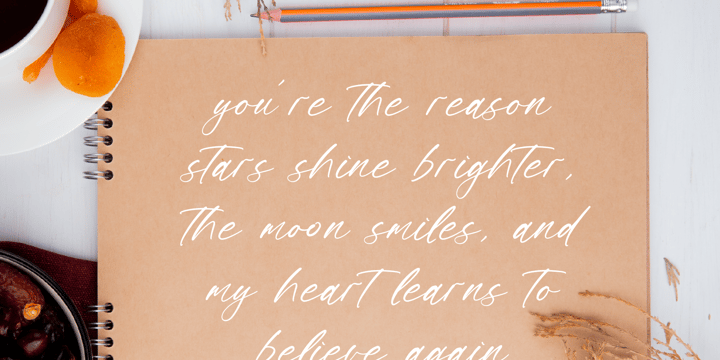 you're the reason
stars shine brighter,
the moon smiles, and
my heart learns to
believe again